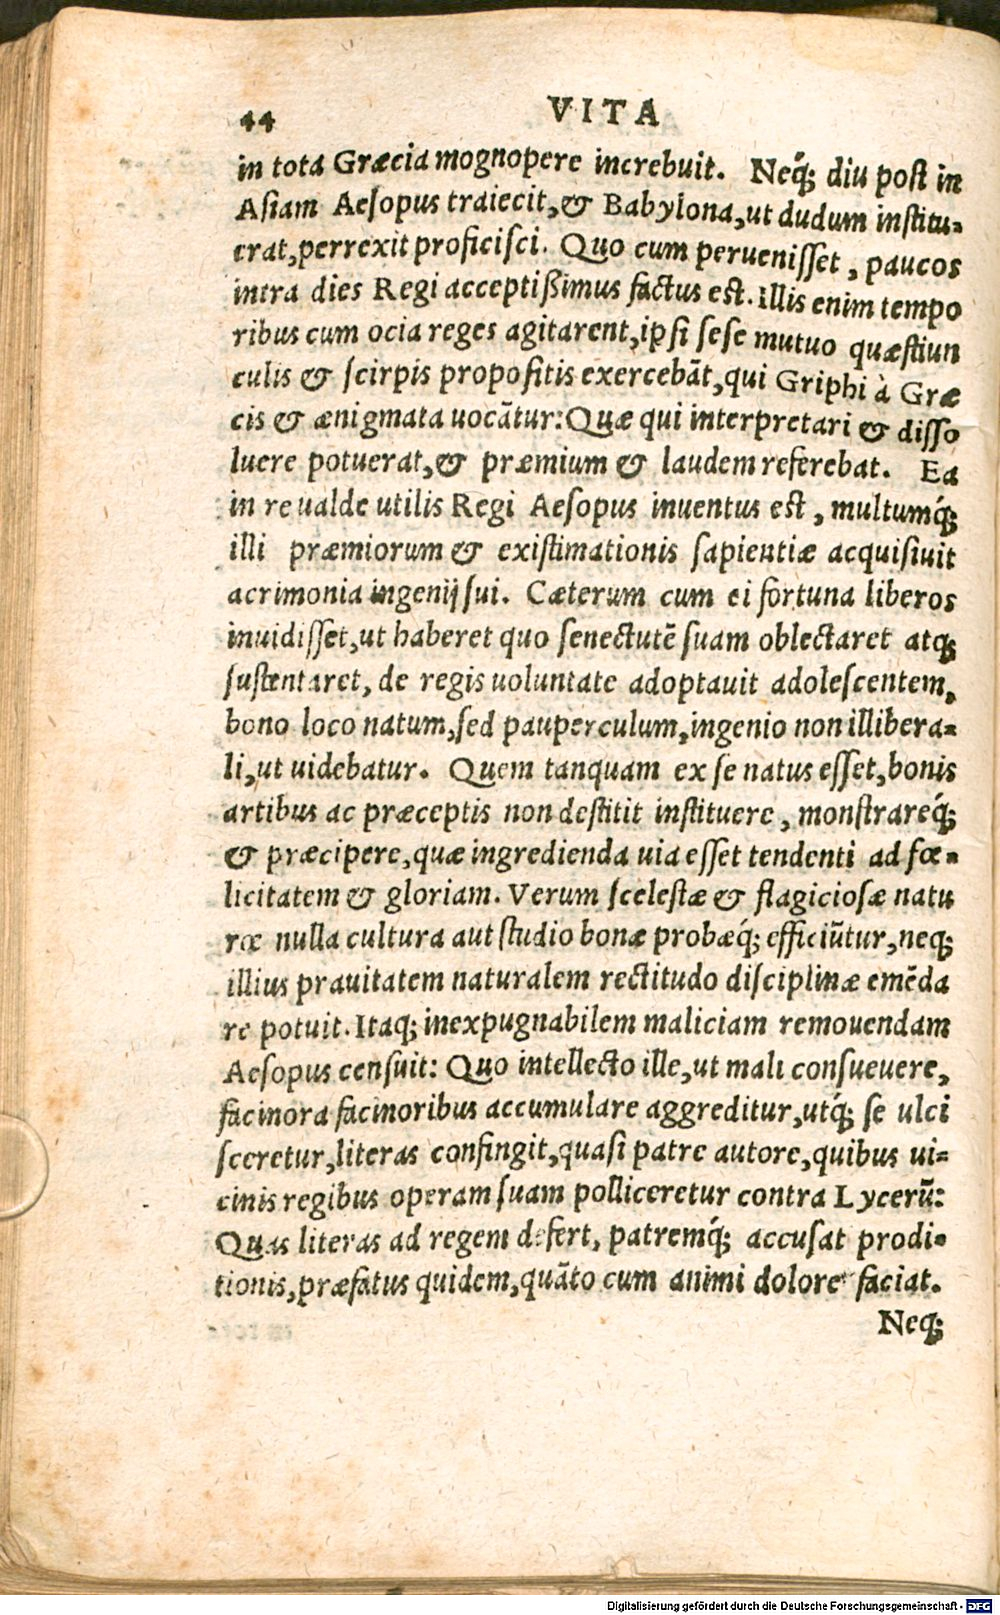 44 VITA
in tota Græcia mognopere increbuit. Neq́; diu post in
Asiam Aesopus traiecit, & Babylona, ut dudum institu-
erat, perrexit proficisci. Quo cum peruenisset, paucos
intra dies Regi acceptißimus factus est. Illis enim tempo
ribus cum ocia reges agitarent, ipsi sese mutuo quæstiun
culis & scirpis propositis exercebāt, qui Griphi à Græ
cis & ænigmata uocātur: Quæ qui interpretari & disso
luere potuerat, & præmium & laudem referebat. Ea
in re ualde utilis Regi Aesopus inuentus est, multumq́;
illi præmiorum & existimationis sapientiæ acquisiuit
acrimonia ingenij sui. Cæterum cum ei fortuna liberos
inuidisset, ut haberet quo senectutē suam oblectaret atq;
sustentaret, de regis uoluntate adoptauit adolescentem,
bono loco natum, sed pauperculum, ingenio non illibera-
li, ut uidebatur. Quem tanquam ex se natus esset, bonis
artibus ac præceptis non destitit instituere, monstrareq́;
& præcipere, quæ ingredienda uia esset tendenti ad fœ-
licitatem & gloriam. Verum scelestæ & flagiciosæ natu
ræ nulla cultura aut studio bonæ probæq́; efficiūtur, neq;
illius prauitatem naturalem rectitudo disciplinæ emēda
re potuit. Itaq; inexpugnabilem maliciam remouendam
Aesopus censuit: Quo intellecto ille, ut mali consueuere,
facinora facinoribus accumulare aggreditur, utq́; se ulci
sceretur, literas confingit, quasi patre autore, quibus ui-
cinis regibus operam suam polliceretur contra Lycerū:
Quas literas ad regem defert, patremq́; accusat prodi-
tionis, præfatus quidem, quāto cum animi dolore faciat.
Neq;
Digitalisierung gefördert durch die Deutsche Forschungsgemeinschaft - DFG